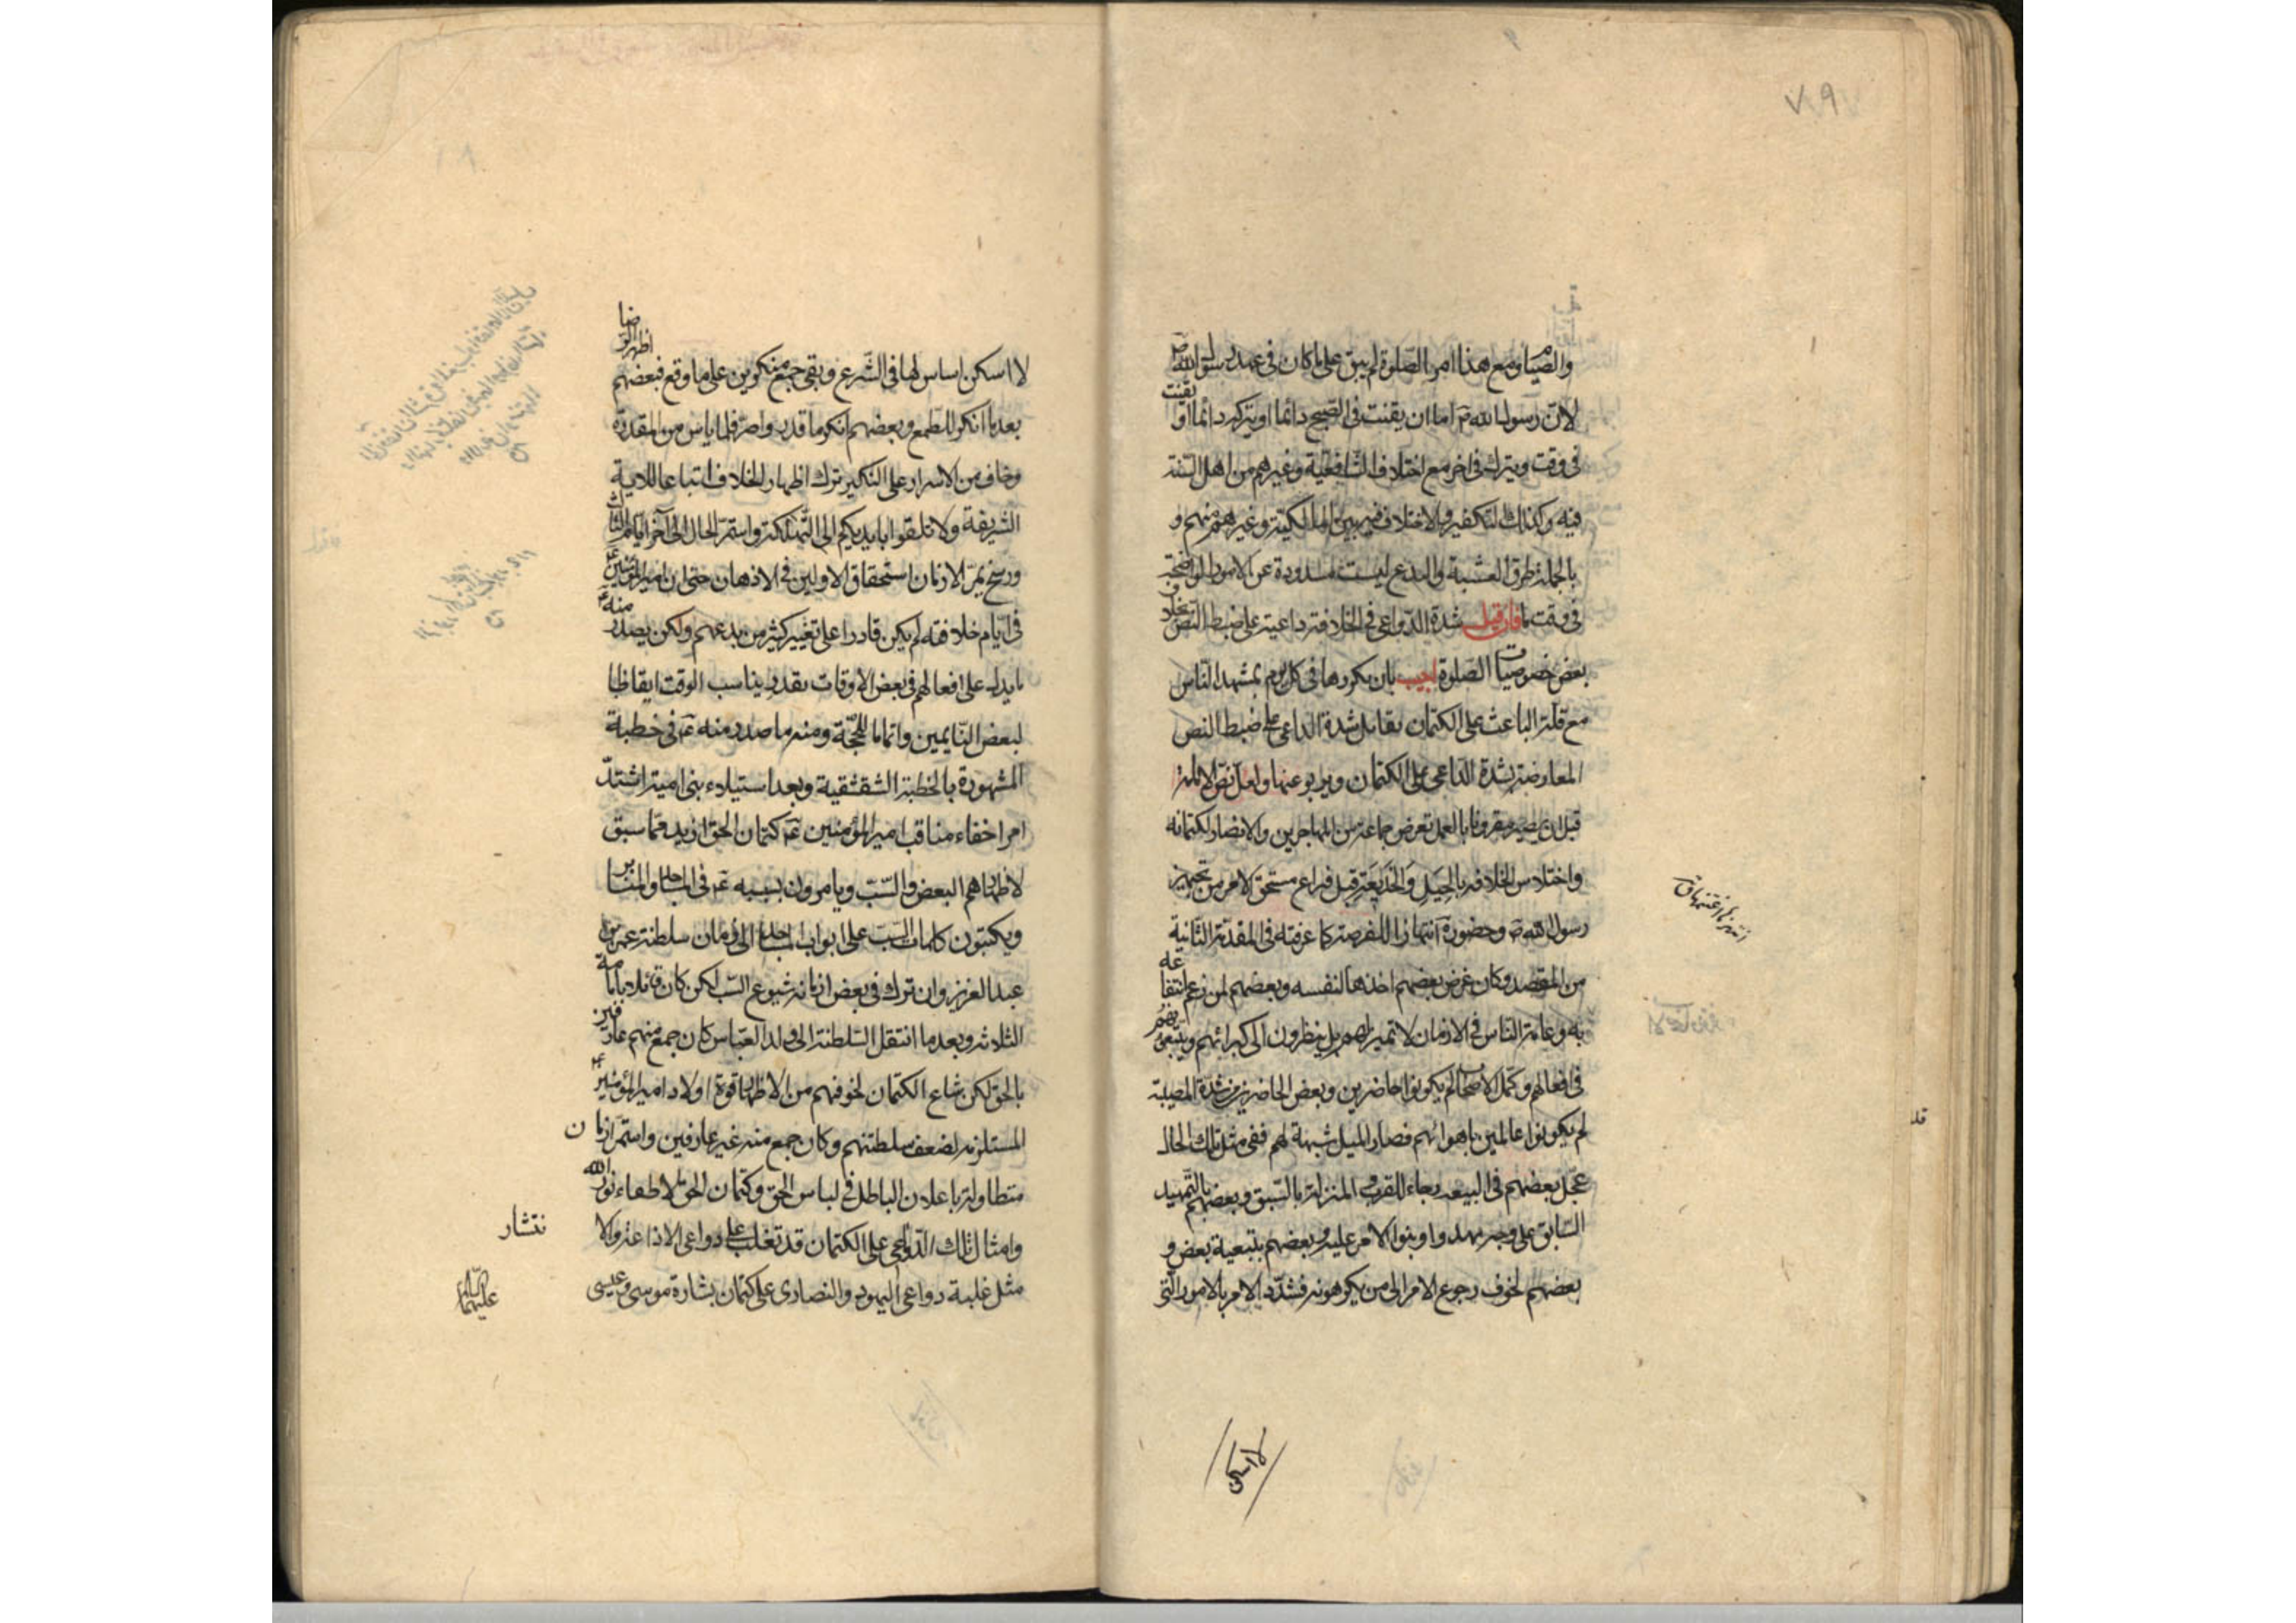 والصيام ومع هذا امر الصلوة لم يبق على ما كان فى عهد رسول الله ص
لان رسول الله ص اما ان يقنت فى الصبح دائما او يتركه دائما او يقنت
فى وقت ويترك فى اخر مع اختلاف الشافعية وغيرهم من اهل السنة
فيه وكذلك التكفير والاختلاف فيه بين المالكية وغيرهم منهم و
بالجملة طرق الشبهة والبدع ليست مسدودة عن الامور الواضحة
فى وقت ما فان قيل شدة الدواعى فى الخلافة داعية على ضبط النص بخلاف
بعض خصوصيات الصلوة اجيب بان تكررها فى كل يوم بمشهد الناس
مع قلة الباعث على الكتمان يقابل شدة الداعى على ضبط النص
المعارضة بشدة الداعى على الكتمان ويربو عنها ولعل نص الامامة
قبل ان يصير مقرونا بالعمل تعرض جماعة من المهاجرين والانصار لكتمانه
واختلاس الخلافه بالحيل والخديعة قبل فراغ مستحق الامر من تجهيز
رسول الله ص وحضوره انتهازا للفرصة كما عرفته فى المقدمة الثانية
من المقصد وكان غرض بعضهم اخذها لنفسه وبعضهم لمن زعم انتفاعه
به وعامة الناس فى الازمان لا تميز لهم بل ينظرون الى كبرائهم ويتبعونهم
فى افعالهم وكمل الاصحاب لم يكونوا حاضرين وبعض الحاضرين من شدة المصيبة
لم يكونوا عالمين باهوائهم فصار الميل شبهة لهم ففى مثل تلك الحال
عجل بعضهم فى البيعه رجاء للقرب و المنزلة بالسبق وبعضهم بالتمهيد
السابق على وجه مهدوا وبنوا الامر عليه وبعضهم بتبعية بعض و
بعضهم لخوف رجوع الامر الى من يكرهونه فشدد الامر بالامور التى
لا اسكن
لا اسكن اساس لها فى الشرع وبقى جمع منكرين على ما وقع فبعضهم اظهر الرضا
بعد ما انكر للطمع وبعضهم انكر ما قدر واصر فلما يأس من المقدرة
وخاف من الاسرار على النكير ترك اظهار الخلاف اتباعا للاية
الشريفة ولا تلقوا بايديكم الى التهلكة واستمر الحال الى آخر ايام الثالث
ورسخ بمر الازمان استحقاق الاولين فى الاذهان حتى ان امير المؤمنين ع
فى ايام خلافته لم يكن قادرا على تغيير كثير من بدعهم ولكن يصدر منه ع
ما يدل على افعالهم فى بعض الاوقات بقدر يناسب الوقت ايقاظا
لبعض النايمين واتماما للحجة ومنه ما صدر منه ع فى خطبة
المشهورة بالخطبة الشقشقية وبعد استيلاء بنى امية اشتد
امر اخفاء مناقب امير المؤمنين ع كتمان الحق ازيد مما سبق
لاظهارهم البغض والسب ويامرون بسبه ع فى المساجد والمنابر
ويكتبون كلمات السب على ابواب المساجد الى زمان سلطنة عمر بن
عبد العزيز وان ترك فى بعض ازمانه شيوع السب لكن كان قائلا بامامة
الثلاثه وبعد ما انتقل السلطنة الى ولد العباس كان جمع منهم عارفين
بالحق لكن شاع الكتمان لخوفهم من الاظهار قوة اولاد امير المؤمنين ع
المستلزمه لضعف سلطنتهم وكان جمع منه غير عارفين واستمر ازمان
متطاولة باعلان الباطل فى لباس الحق وكتمان الحق لاطفاء نور الله
وامثال تلك الدواعى على الكتمان قد تغلب على دواعى الاذاعة والا
نتشار
مثل غلبة دواعى اليهود والنصارى على كتمان بشارة موسى وعيسى
عليهما السلام